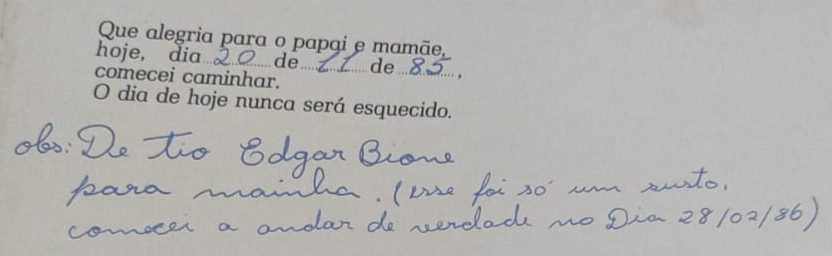 Que alegria para o papai e mamãe,
hoje, dia 20 de 11 de 85,
comecei caminhar.
O dia de hoje nunca será esquecido.
obs: De tio Edgar Bione
para mainha. (esse foi só um susto,
comecei a andar de verdade no Dia 28/02/86)